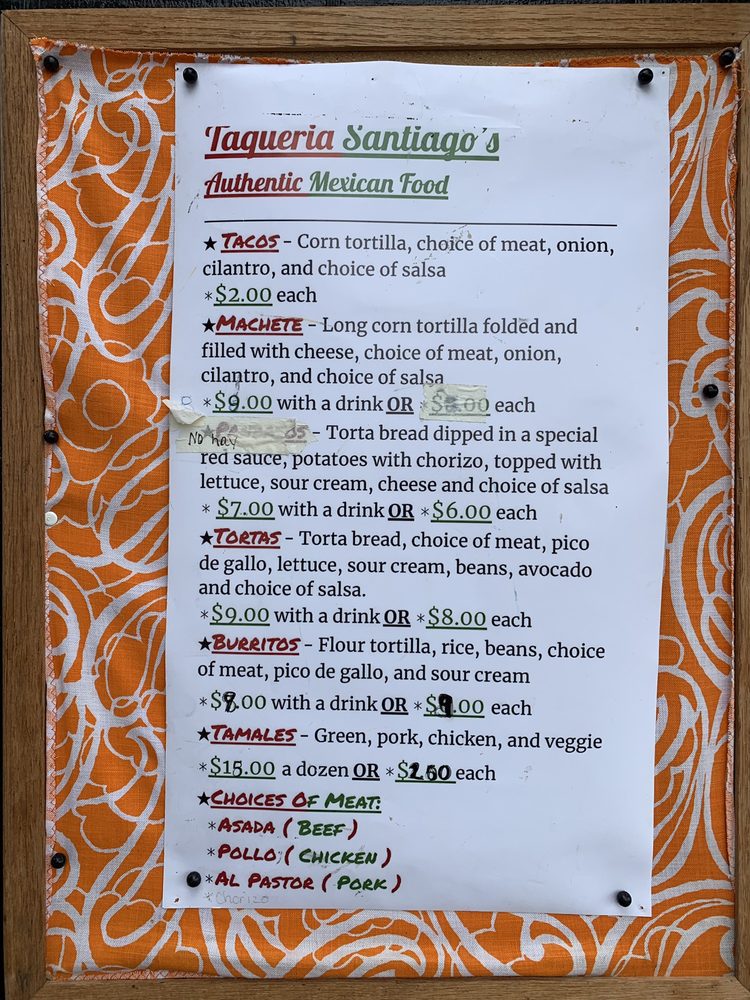 Taqueria Santiago's
Authentic Mexican Food
★ TACOS - Corn tortilla, choice of meat, onion,
cilantro, and choice of salsa
*$2.00 each
★MACHETE - Long corn tortilla folded and
filled with cheese, choice of meat, onion,
cilantro, and choice of salsa
*$9.00 with a drink OR *$8.00 each
No hay - Torta bread dipped in a special
red sauce, potatoes with chorizo, topped with
lettuce, sour cream, cheese and choice of salsa
* $7.00 with a drink OR *$6.00 each
★TORTAS - Torta bread, choice of meat, pico
de gallo, lettuce, sour cream, beans, avocado
and choice of salsa.
*$9.00 with a drink OR *$8.00 each
★BURRITOS - Flour tortilla, rice, beans, choice
of meat, pico de gallo, and sour cream
with a drink OR each
★TAMALES - Green, pork, chicken, and veggie
*$15.00 a dozen OR *$2.50 each
★CHOICES OF MEAT:
*ASADA ( BEEF )
*POLLO ( CHICKEN )
*AL PASTOR ( PORK )
*Chorizo